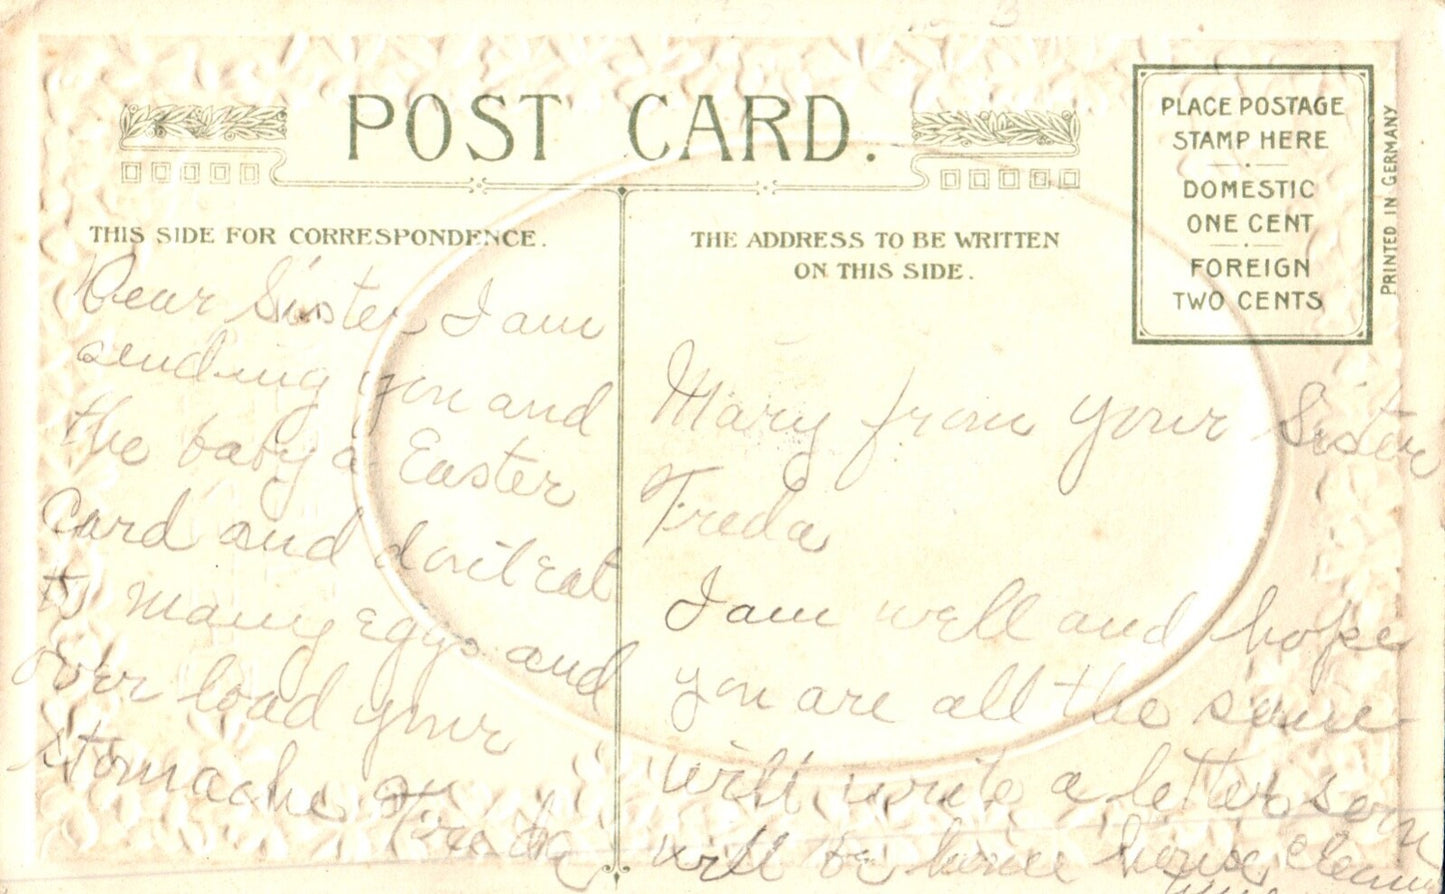 POST CARD.
THIS SIDE FOR CORRESPONDENCE.
Dear Sister I am
sending you and
the baby a Easter
Card and don't Eat
to many eggs and
over load your
stomache
Freda
THE ADDRESS TO BE WRITTEN
ON THIS SIDE.
PLACE POSTAGE
STAMP HERE
DOMESTIC
ONE CENT
FOREIGN
TWO CENTS
PRINTED IN GERMANY
Mary from your Sister
Freda
I am well and hope
you are all the same
will write a letter soon
will be home house